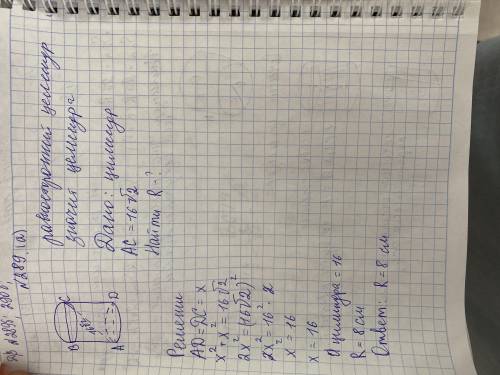 № 293, 290 в,
№289 (а)
равносторонний цилиндр
значит цилиндра
Дано: цилиндр
AC = 16√2
Найти R - ?
B C
A D
Решение
AD = DC = x
x² + x² = 16√2
2x² = (16√2)²
2x² = 16² · 2
x² = 16²
x = 16
D цилиндра = 16
R = 8 см
Ответ: R = 8 см